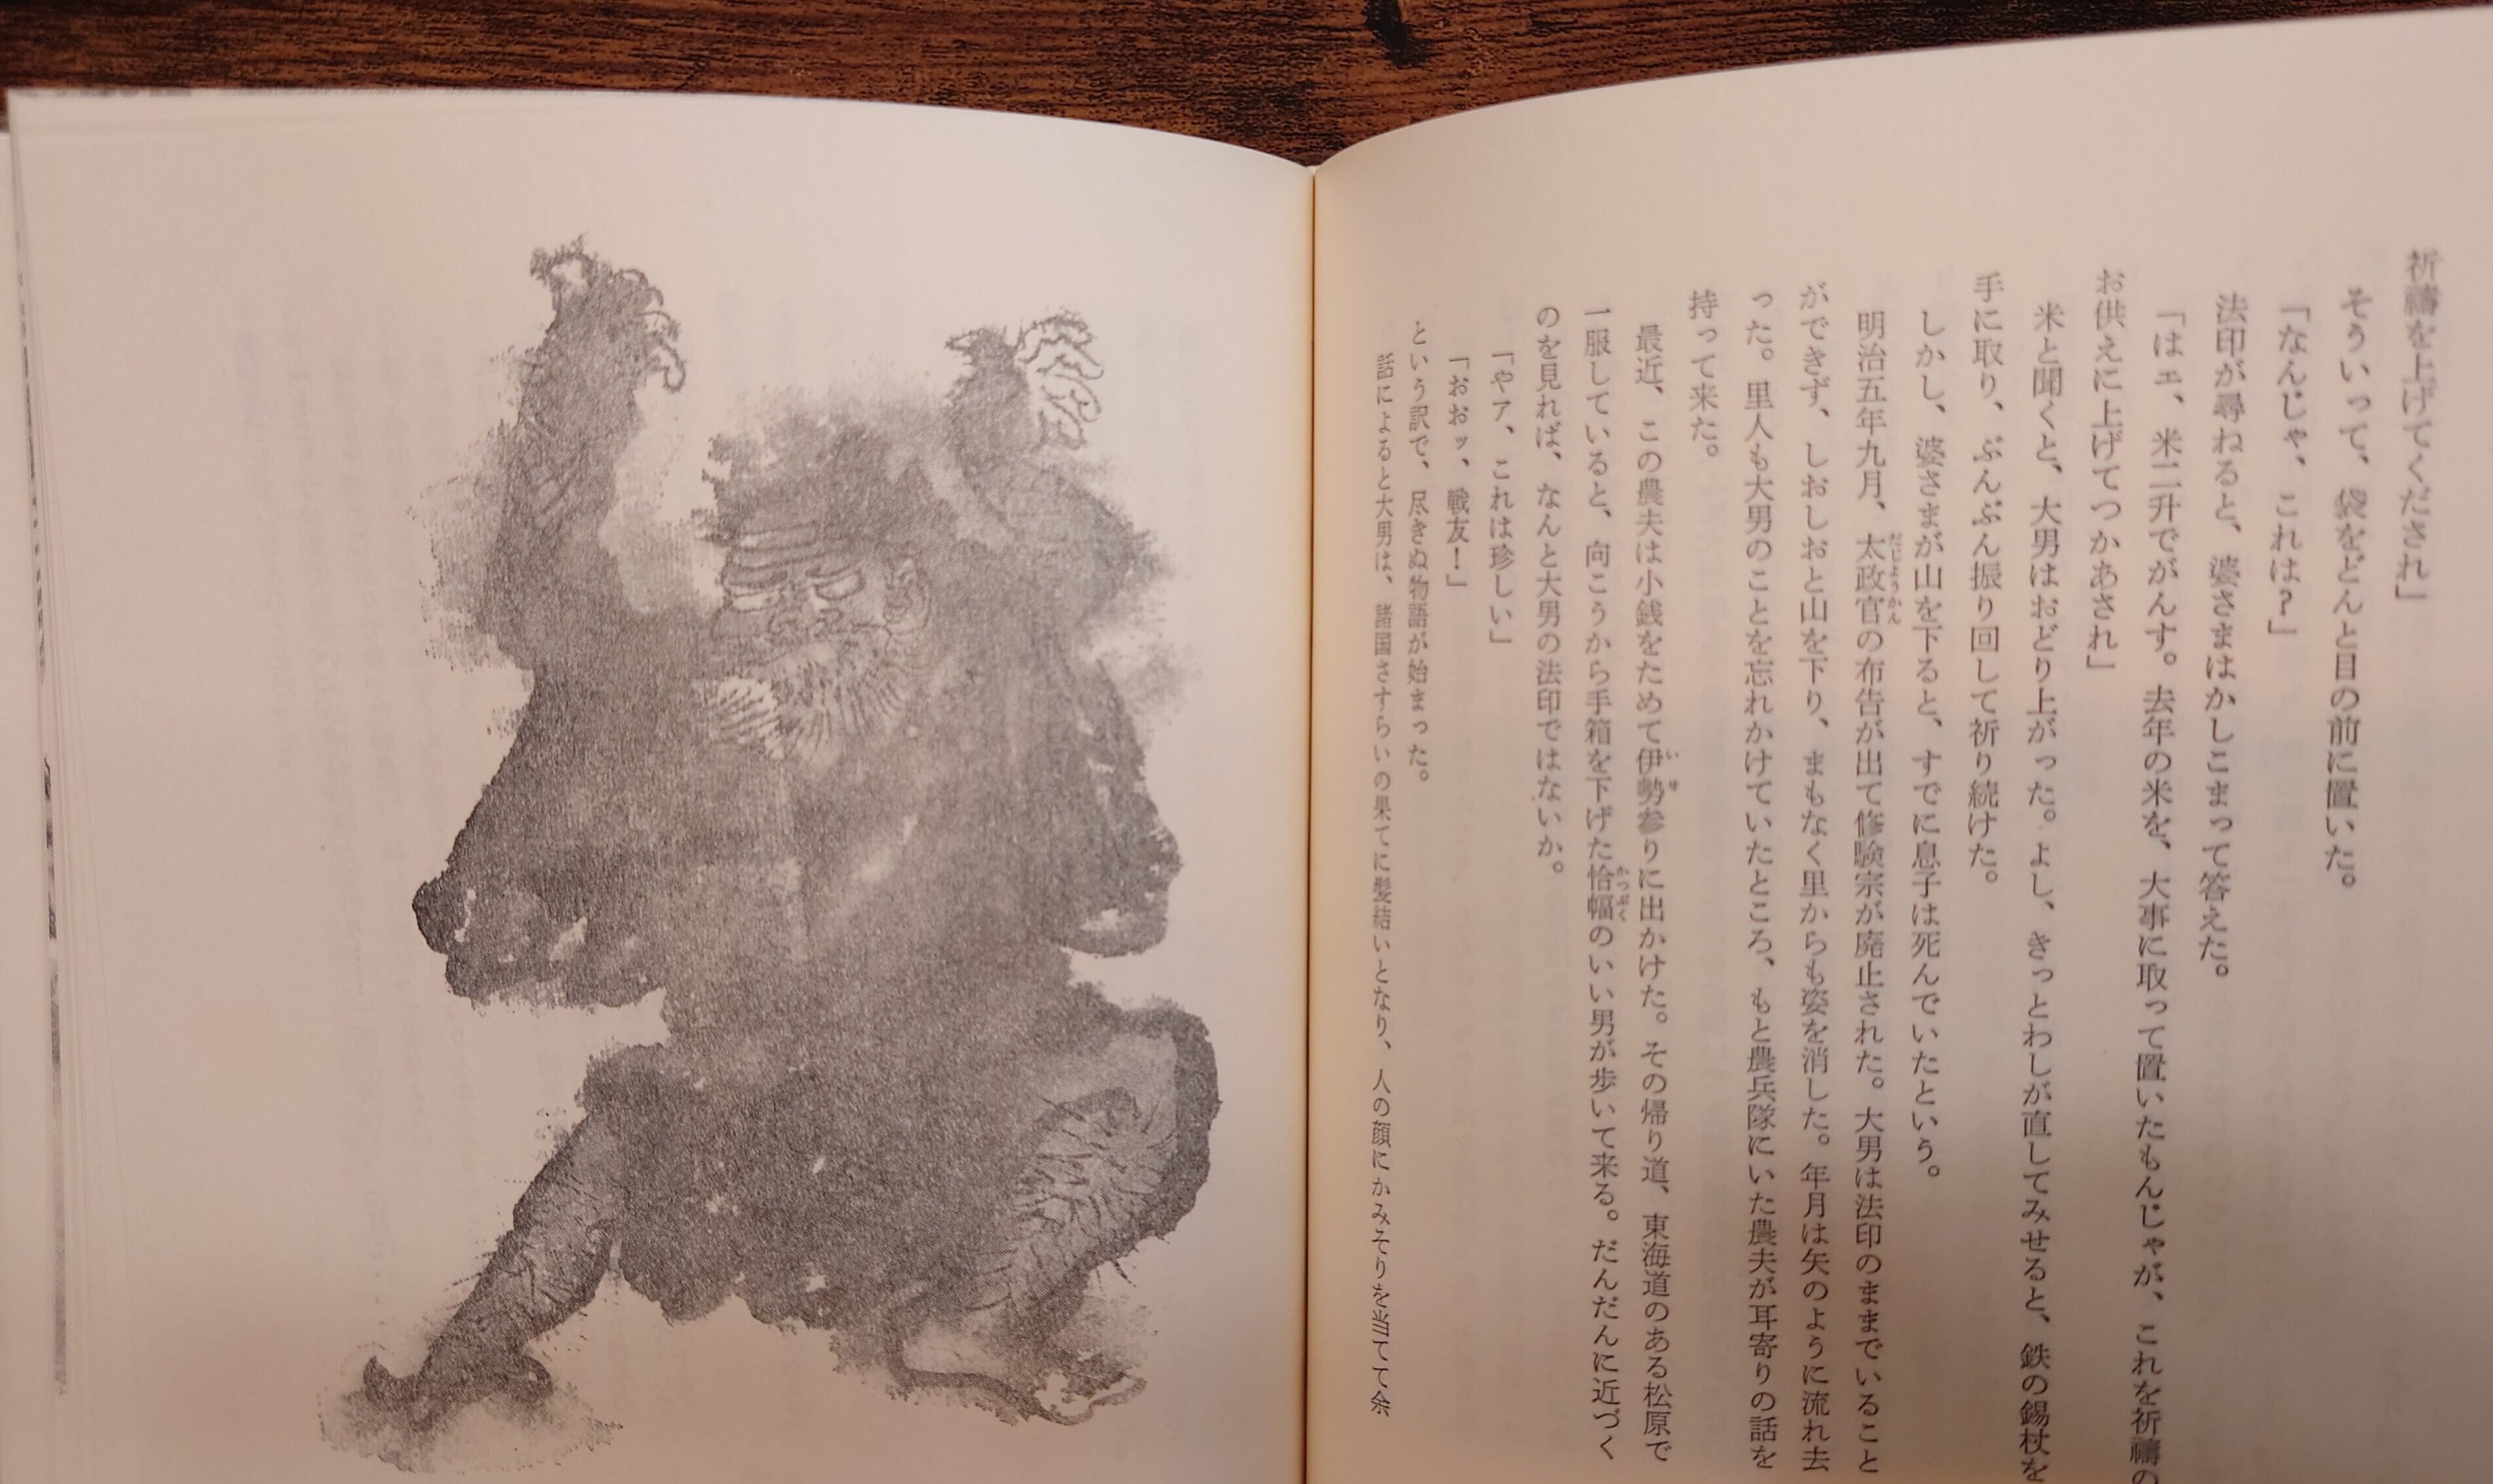 祈禱を上げてくだされ」
そういって、袋をどんと目の前に置いた。
「なんじゃ、これは?」
法印が尋ねると、婆さまはかしこまって答えた。
「はェ、米二升でがんす。去年の米を、大事に取って置いたもんじゃが、これを祈禱の
お供えに上げてつかあされ」
米と聞くと、大男はおどり上がった。よし、きっとわしが直してみせると、鉄の錫杖を
手に取り、ぶんぶん振り回して祈り続けた。
しかし、婆さまが山を下ると、すでに息子は死んでいたという。
明治五年九月、太政官の布告が出て修験宗が廃止された。大男は法印のままでいること
だじょうかん
ができず、しおしおと山を下り、まもなく里からも姿を消した。年月は矢のように流れ去
った。里人も大男のことを忘れかけていたところ、もと農兵隊にいた農夫が耳寄りの話を
持って来た。
最近、この農夫は小銭をためて伊勢参りに出かけた。その帰り道、東海道のある松原で
いせ
一服していると、向こうから手箱を下げた恰幅のいい男が歩いて来る。だんだんに近づく
かっぷく
のを見れば、なんと大男の法印ではないか。
「やア、これは珍しい」
「おおッ、戦友!」
という訳で、尽きぬ物語が始まった。
話によると大男は、諸国さすらいの果てに髪結いとなり、人の顔にかみそりを当てて余